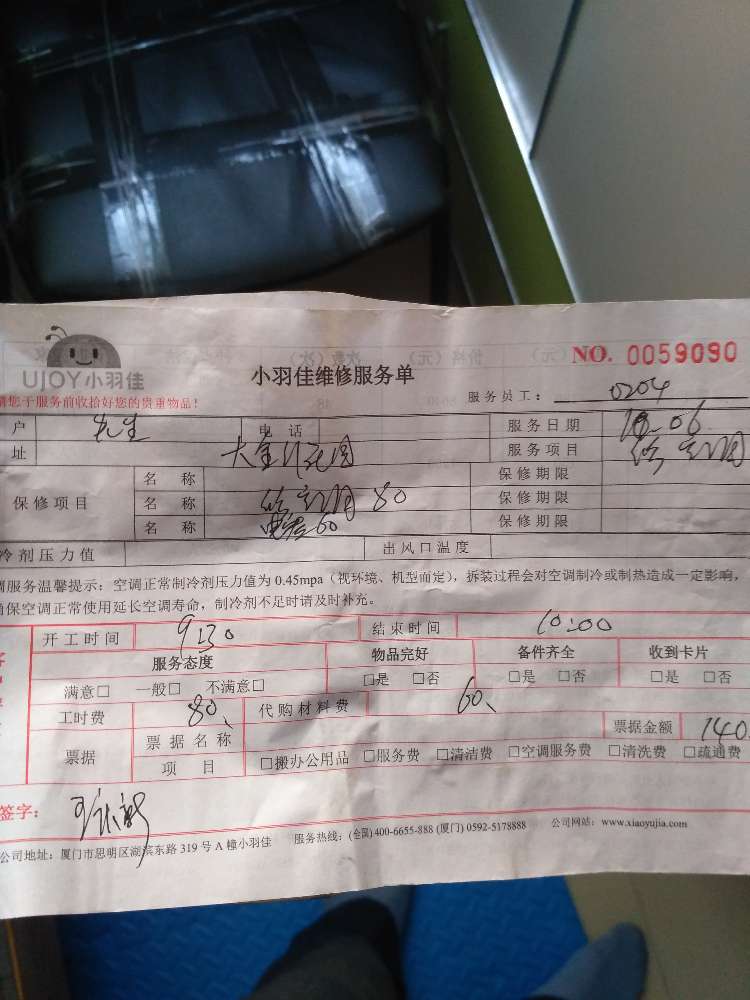 UJOY小羽佳
小羽佳维修服务单
NO. 0059090
请您于服务前收拾好您的贵重物品！
服务员工： 0204
户 先生 电 话 服务日期 10-06
址 服务项目 修空调
保修项目 名 称 保修期限
名 称 修空调 80 保修期限
名 称 60 保修期限
冷剂压力值 出风口温度
调服务温馨提示：空调正常制冷剂压力值为 0.45mpa（视环境、机型而定），拆装过程会对空调制冷或制热造成一定影响，
确保空调正常使用延长空调寿命，制冷剂不足时请及时补充。
开工时间 9:30 结束时间 10:00
服务态度 物品完好 备件齐全 收到卡片
满意□ 一般□ 不满意□ □是 □否 □是 □否 □是 □否
工时费 80、 代购材料费 60、
票据 票 据 名 称 票据金额 140
项 目 □搬办公用品 □服务费 □清洁费 □空调服务费 □清洗费 □疏通费
签字：
公司地址：厦门市思明区湖滨东路 319 号 A 幢小羽佳 服务热线：(全国) 400-6655-888 (厦门) 0592-5178888 公司网站：www.xiaoyujia.com